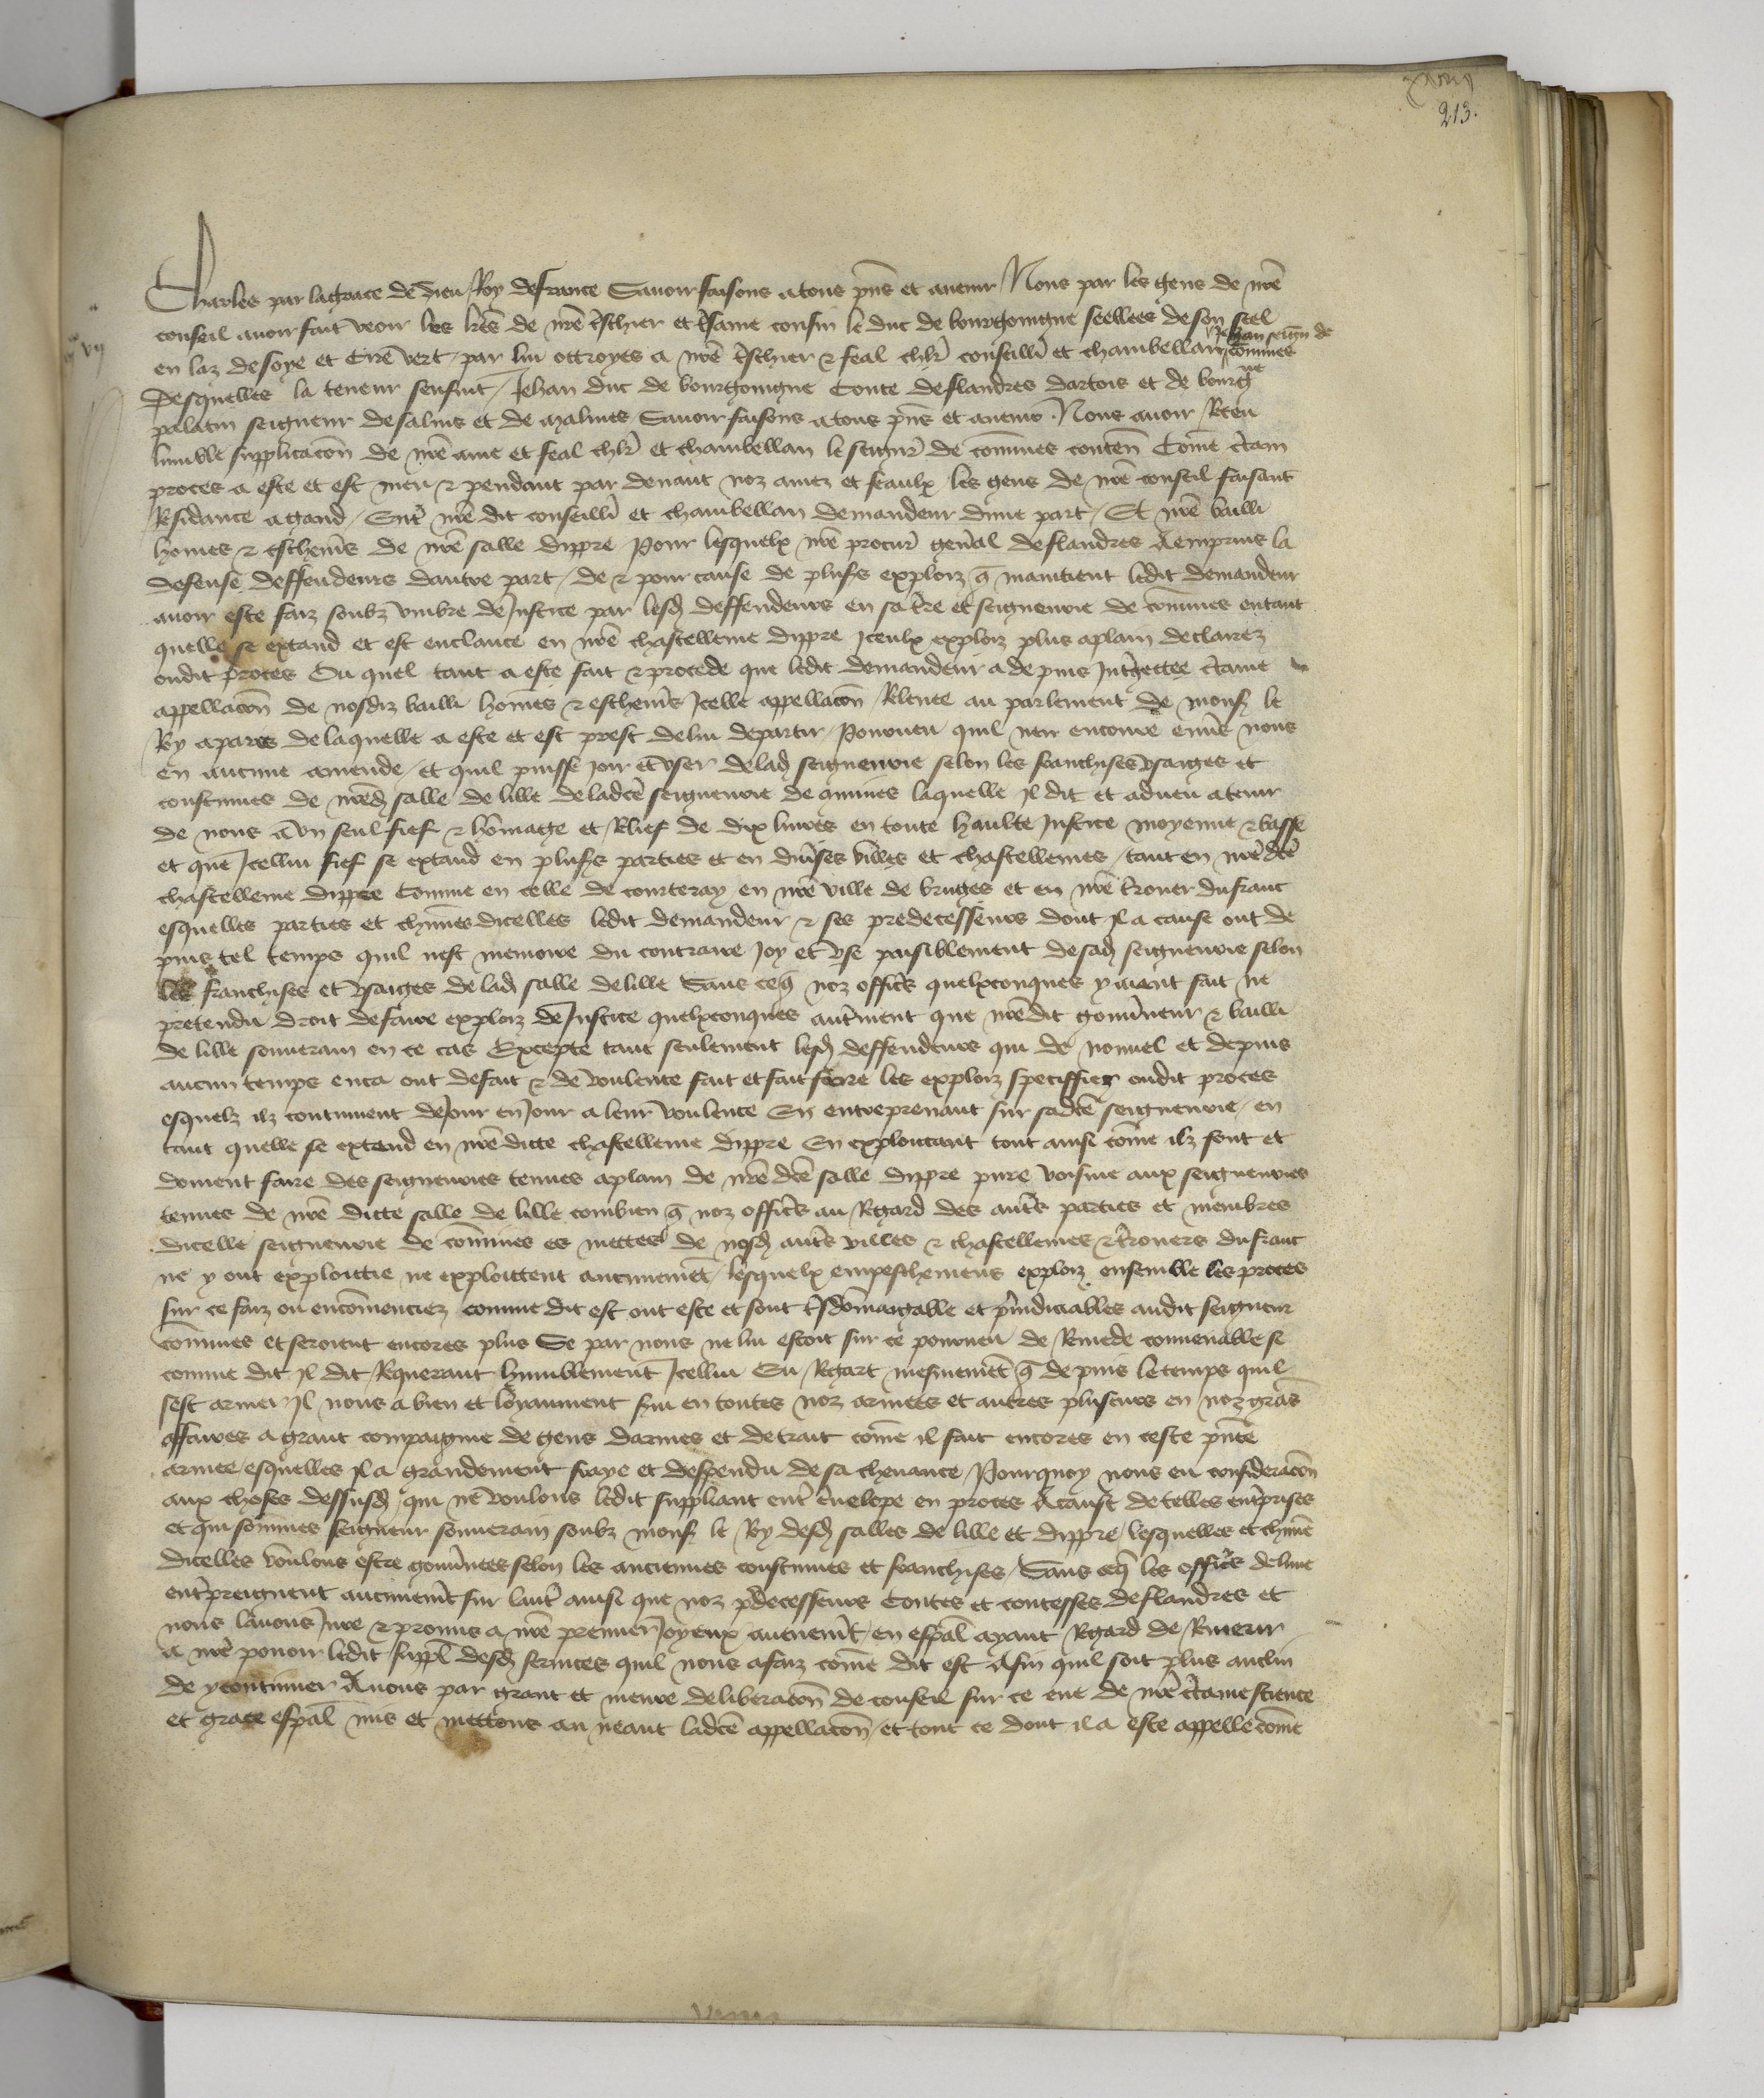 213.
Charles par la grace de dieu Roy de france Savoir faisons a tous pñs et avenir Nous par les gens de nrē
conseil avoir fait veoir les lrēs de nrē tschier et tsame cousin le duc de bourgoingne seellees de son seel
Jehan seignr de
en laz de soye et cire vert par lui ottroyes a nrē tschier & feal chlr conseillr et chambellan commines
Desquelles la teneur sensuit Jehan duc de bourgoingne Conte de flandres dartois et de bourgne
palatin seigneur de salins et de malines Savoir faisons a tous pñs et avenir Nous avoir Receu
lumble supplicacōn de nrē ame et feal chlr et chambellan le seignr de cōmines contenn Cōme ctain
proces a este et est meu & pendant par devant noz amez et feaulx les gens de nrē conseil faisant
Residance a gand Entr nrē dit conseillr et chambellan demandeur dune part Et nrē bailli
hōmes & eschevis de nrē salle dippre Pour lesquelx nrē procur genal de flandres A emprins la
defense deffendeurs dautre part de & pour cause de plusrs exploiz q̄ maintient ledit demandeur
avoir este faiz soubz umbre de Justice par lesd deffendeurs en sa tre et seigneurie de cōmines entant
quelle se extand et est enclavee en nrē chastellenie dippre iceulx exploiz plus aplain declairez
oudit proces Ou quel tant a este fait & procede que ledit demandeur a depuis Intgettee ctaine
appellacōn de nosdiz bailli hōmes & eschevis Icelle appellacōn Relevee au parlement de monsr le
Roy a paris de laquelle a este et est prest de lui departir Pourveu quil nen encoure envs nous
en aucune amende et quil puisse joir et user de lad seigneurie selon les franchises usaiges et
coustumes de nrēd salle de lille de ladcē seigneurie de cōmines laquelle il dit et adveu a tenir
de nous a un seul fief & hōmage et Relief de dix livres en toute haulte Justice moyenne & basse
et que Icellui fief se extand en plusrs parties et en divses villes et chastellenies tant en nrē dcē
chastellenie dippre Comme en celle de courteray en nrē ville de bruges et en nrē trouer du franc
esquelles parties et chūnes dicelles ledit demandeur & ses predecesseurs dont il a cause ont de
puis tel temps quil nest memoire du contraire Joy et use paisiblement de sad seigneurie selon
les franchises et usaiges de lad salle de lille Sans ceq̄ noz officrs quelxconques y aient fait ne
pretendu droit de faire exploiz de Justice quelxconques autrment que nrēdit gouvneur & bailli
de lille souverain en ce cas Excepte tant seulement lesd deffendeurs qui de nouvel et depuis
aucun temps enca ont de fait & de voulente fait et fait faire les exploiz speciffiez oudit proces
esquelz ilz continuent de Jour en Jour a leur voulente En entreprenant sur sadcē seigneurie en
tant quelle se extend en nrēdicte chastellenie dippre En exploitant tout ainsi cōme ilz font et
doivent faire des seigneuries tenues aplain de nrē dcē salle dippre pure voisine aux seigneuries
tenues de nrē dicte salle de lille combien q̄ noz officrs au Regard des autrs parties et membres
dicelle seigneurie de cōmines es mettes de nosd autrs villes & chastellenies & trouers du franc
ne y ont exploictie ne exploittent aucunemēt lesquelx empeschemens exploiz ensemble les proces
sur ce faiz ou encōmenciez comme dit est ont este et sont tsdōmaigable et prēiudiciables audit seigneur
cōmines et seroient encores plus Se par nous ne lui estoit sur ce pourveu de Remede convenable se
comme dit il dit Requerant humblement Icellui Eu Regart mesmemēt q̄ depuis le temps quil
sest armer Il nous a bien et loyaument svi en toutes noz armees et autres plusieurs en noz grās
affaires a grant compaignie de gens darmes et de trait cōme il fait encores en ceste pñte
armee esquelles il a grandement fraye et despendu de sa chevance Pourquoy nous en consideracōn
aux choses dessusd qui ne voulons ledit suppliant entr envelope en proces A cause de telles entrprises
et qui sommes seigneur souverain soubz monsr le Roy desd salles de lille et dippre lesquelles et chūne
dicelles voulons estre gouvnees selon les anciennes coustumes et franchises Sans ceq̄ les officrs de lune
entrpreignent aucunemēt sur lautr ainsi que noz predecesseurs Contes et contesses de flandres et
nous lavons Jure & promis a nrē premier Joyeux advenemēt en espāl ayant Regard de Remerir
a nrē povoir ledit suppl desd services quil nous a faiz cōme dit est Afin quil soit plus anclin
de y continuer Avons par grant et meure deliberacōn de conseil sur ce eue de nrē ctaine science
et grace espāl mis et mettons au neant ladcē appellacōn et tout ce dont il a este appelle cōme